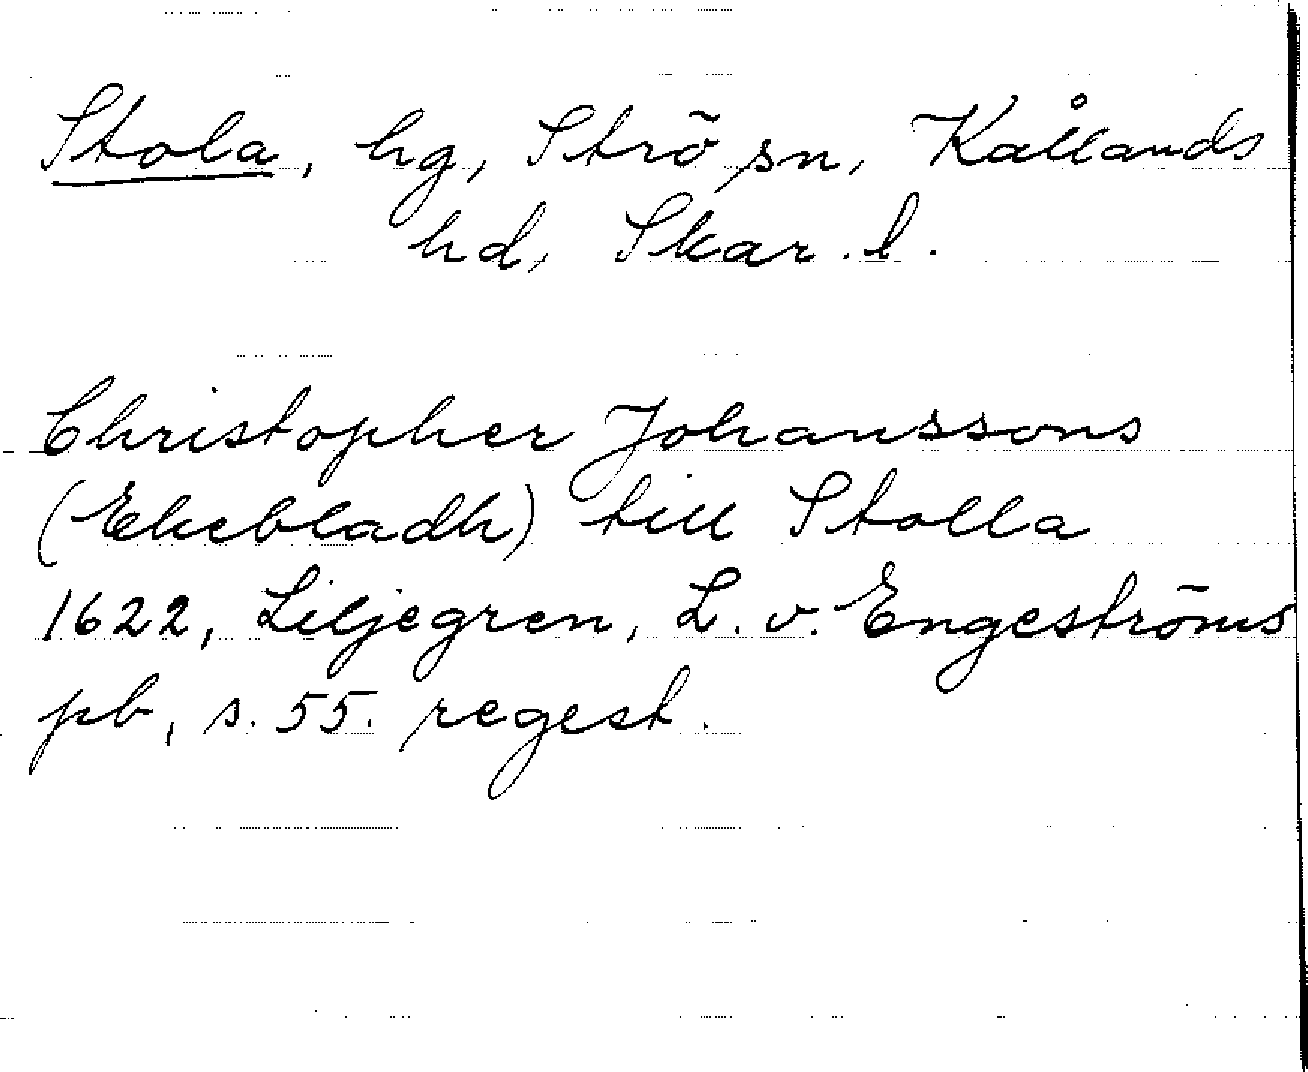 Stola, hg, Strö sn, Kållands
hd, Skar. l.
Christopher Johanssons
(Ekebladh) till Stolla
1622, Liljegren, L. v. Engeströms
pb, s. 55. regest.